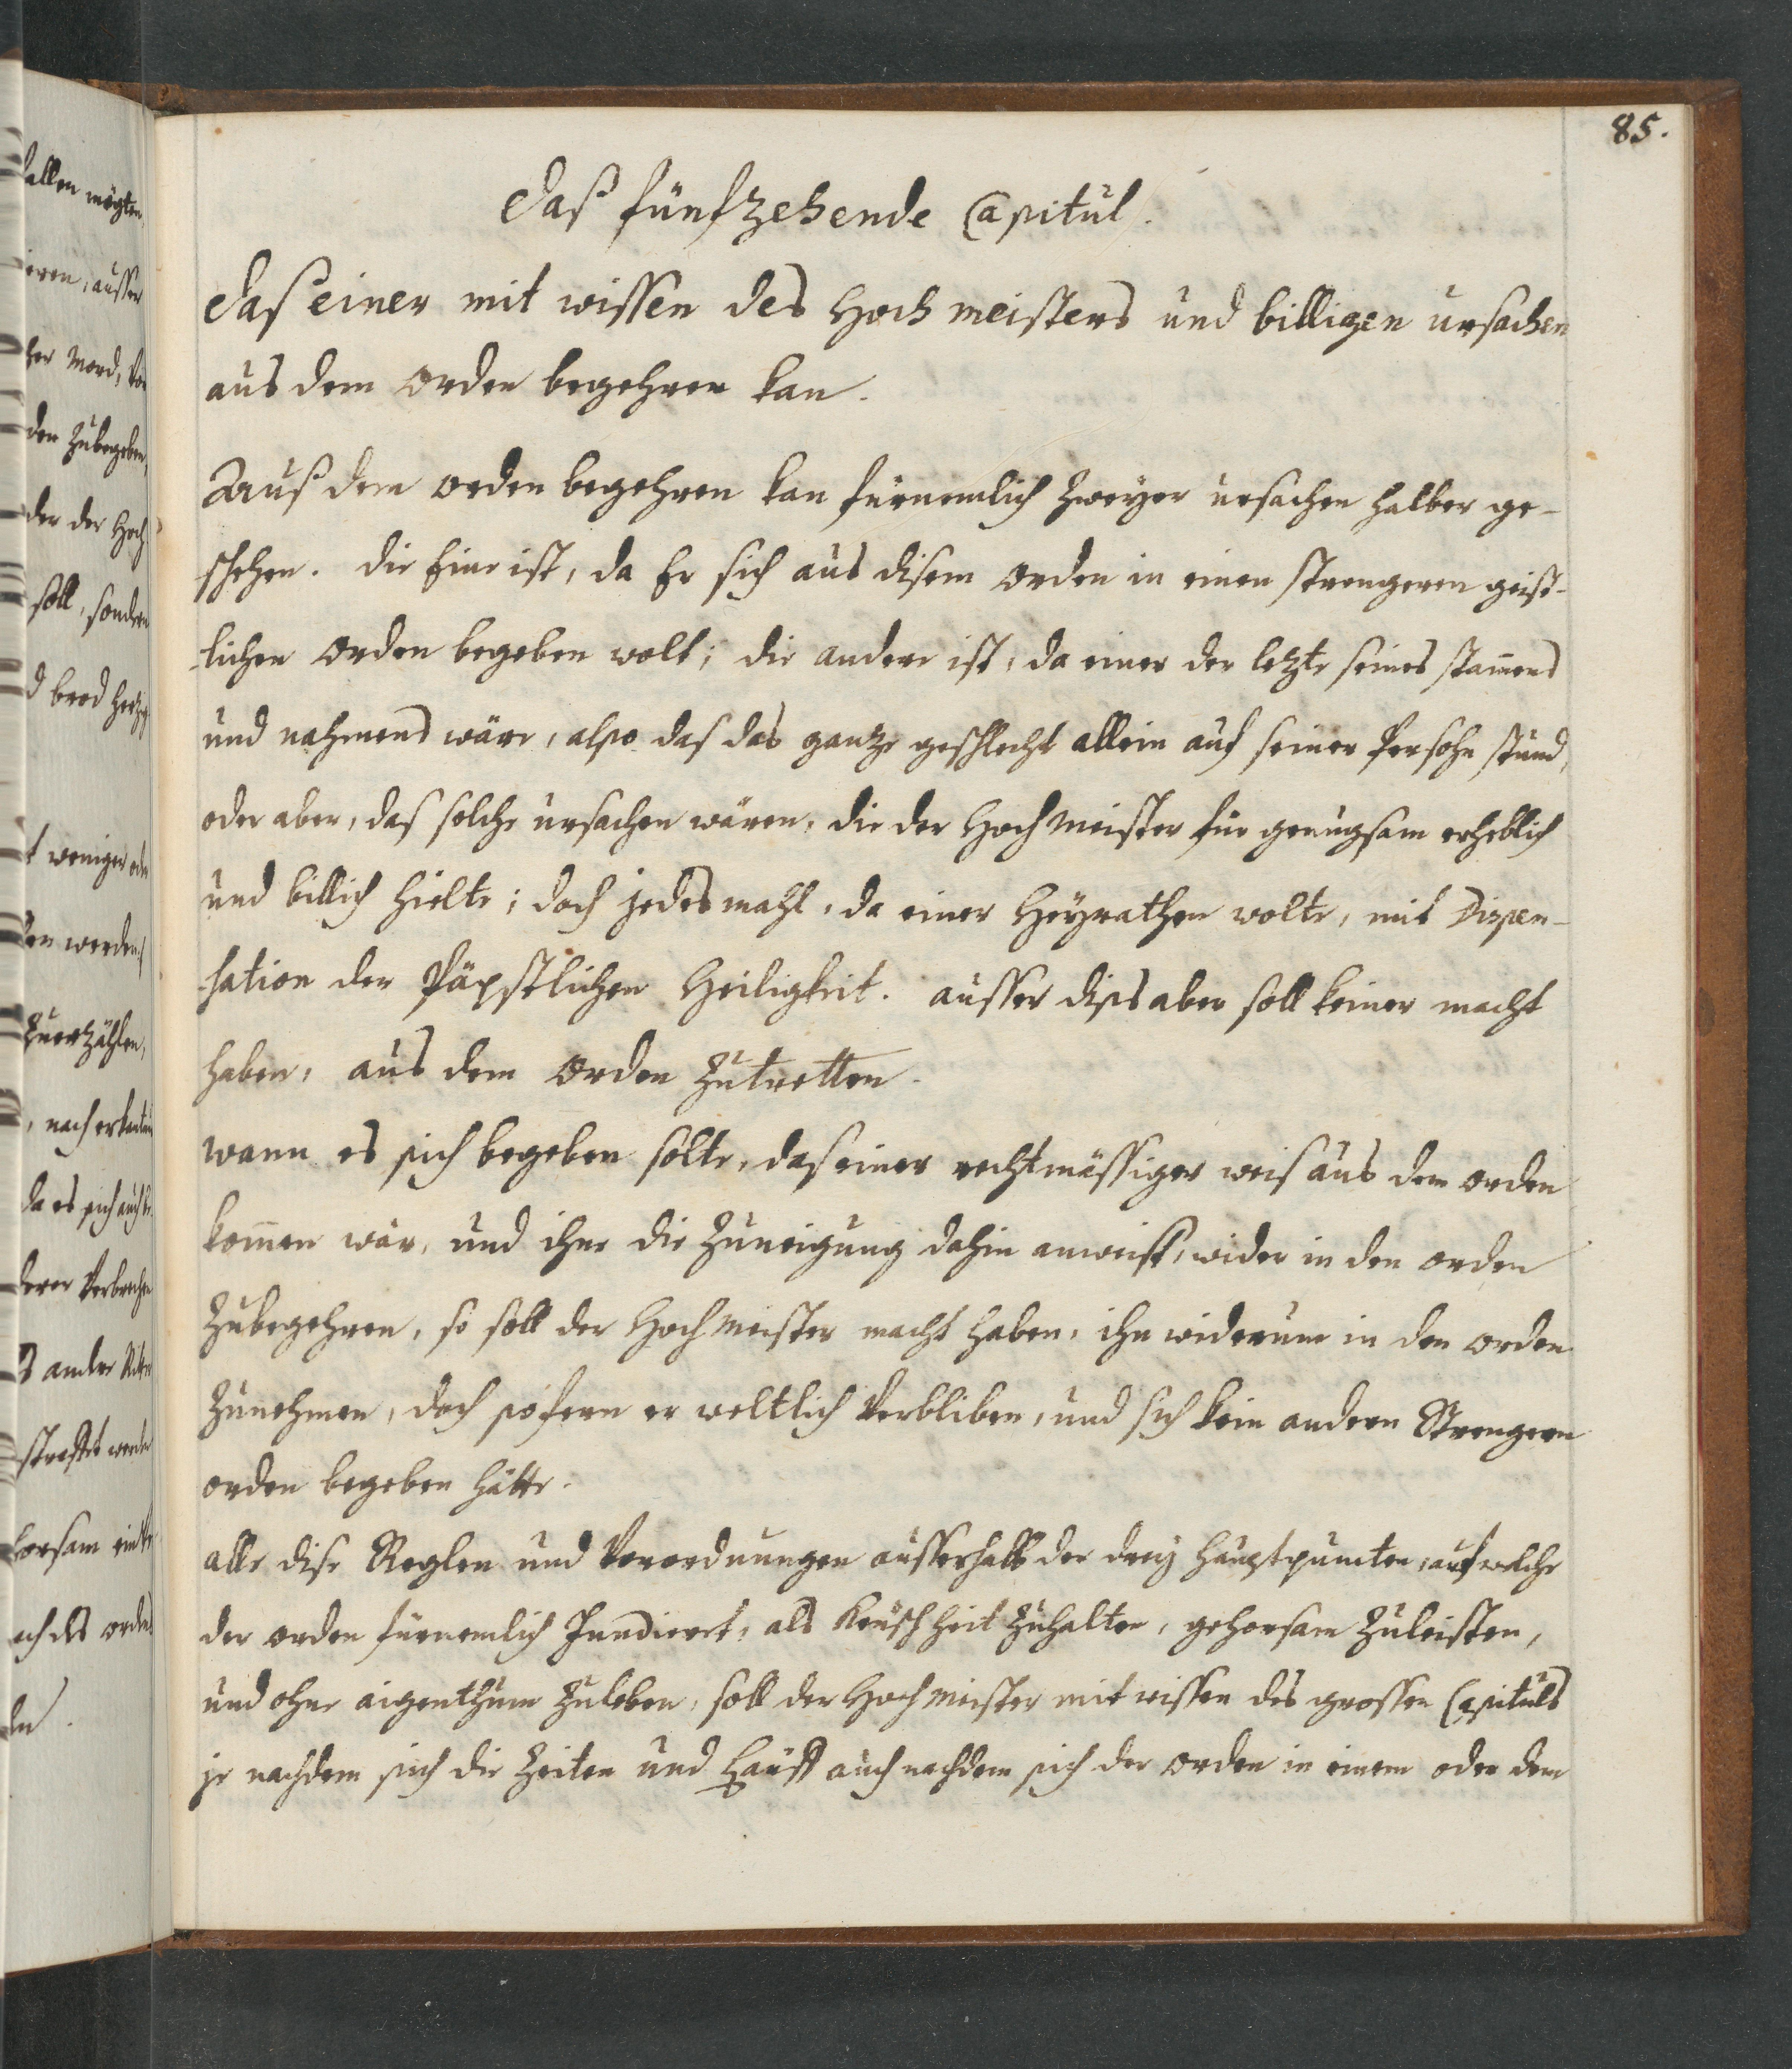 85.
Daß fünfzehende Capitul.
das einer mit wissen des Hochmeisters und billigen ursachen
aus dem orden begehren kan.
Auß dem orden begehren kan fürnemlich zweyer ursachen halber ge-
schehen. die Eine ist, da Er sich aus disem orden in einen strengeren geist-
lichen orden begeben wolt; die andere ist, da einer der letzte seines stam̄ens
und nahmens wäre, also das das gantze geschlecht allein auf seiner Persohn stund,
oder aber, das solche ursachen wären, die der Hochmeister für genugsam erheblich
und billich hielte; doch jedesmahl, da einer Heyrathen wolte, mit Dispen-
sation der Päpstlichen Heiligkeit. ausser diss aber soll keiner macht
haben, aus dem orden zutretten.
wann es sich begeben solte, das einer rechtmässiger weis aus dem orden
kom̄en wär, und ihne die zuneigung dahin anweist, wider in den orden
zubegehren, so soll der Hochmeister macht haben, ihn widerum in den orden
zunehmen, doch sofern er weltlich verbliben, und sich kein andern Strengern
orden begeben hätte.
alle dise Reglen und verordnungen ausserhalb der drey hauptpuncten, auf welche
der orden fürnemlich fundiert, als keuschheit zuhalten, gehorsam zuleisten,
und ohne aigenthum zuleben, soll der Hochmeister mit wissen des grossen Capituls
je nachdem sich die zeiten und Läuff auch nachdem sich der orden in einem oder dem
allen mögten,
ieren, ausser
den zubegeben,
der der Hoch
soll, sondern
t weniger oder
en werden,
zuerzählen,
da es sich auch be
s andre Ritter
straffet werden
horsam
ach des ordens